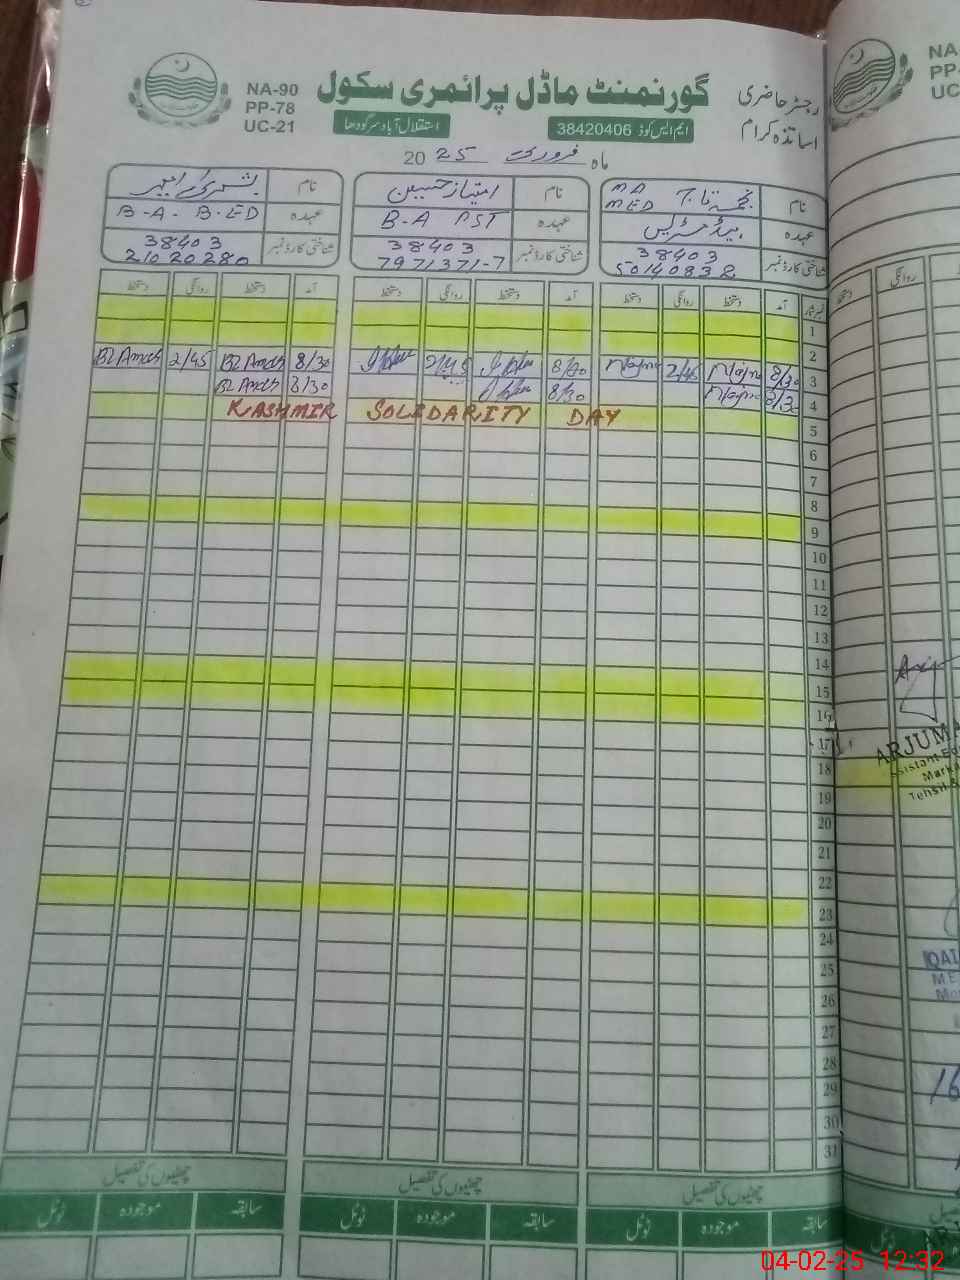 NA-90
PP-78
UC-21
گورنمنٹ ماڈل پرائمری سکول
رجسٹر حاضری
اساتذہ کرام
استقلال آباد سرگودھا
ایم ایس کوڈ 38420406
ماہ فروری 2025
نام
M A
M ED
نام امتیاز حسین
نام
عہدہ ہیڈ مسٹریس
عہدہ B-A PST
عہدہ B-A- B-ED
شناختی کارڈ نمبر 38403
50140838
شناختی کارڈ نمبر 38403
7971371-7
شناختی کارڈ نمبر 38403
21020280
نمبر شمار آمد دستخط روانگی دستخط آمد دستخط روانگی دستخط آمد دستخط روانگی دستخط
1
2
3 8/30 Najma 2/45 Najma 8/30 2/45 8/30 2/45
4 8/30 Najma 8/30 8/30
KASHMIR SOLIDARITY DAY
5
6
7
8
9
10
11
12
13
14
15
16
17
18
19
20
21
22
23
24
25
26
27
28
29
30
31
چھٹیوں کی تفصیل
چھٹیوں کی تفصیل
چھٹیوں کی تفصیل
سابقہ موجودہ ٹوٹل
سابقہ موجودہ ٹوٹل
سابقہ موجودہ ٹوٹل
NA-
PP-
UC
روانگی
دستخط
ARJUMA
Assistant Ed
Marka
Tehsil &
QAI
16
ٹوٹل
04-02-25 12:32